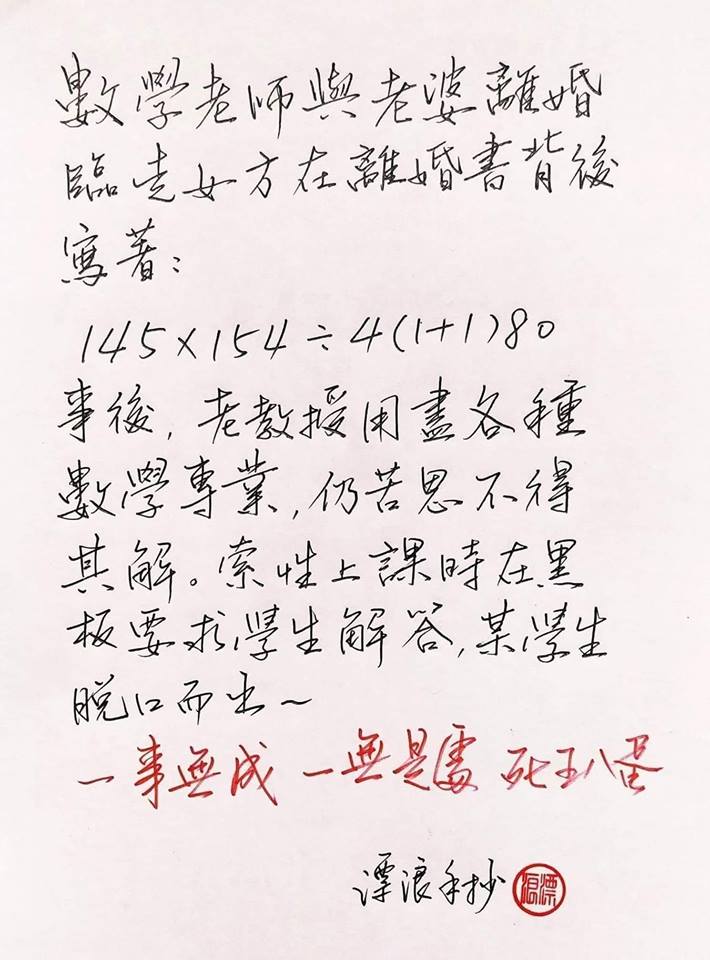 數學老師與老婆離婚
臨走女方在離婚書背後
寫著：
145×154÷4(1+1)80
事後，老教授用盡各種
數學專業，仍苦思不得
其解。索性上課時在黑
板要求學生解答，某學生
脫口而出～
一事無成 一無是處 死王八蛋
漂浪手抄
漂浪